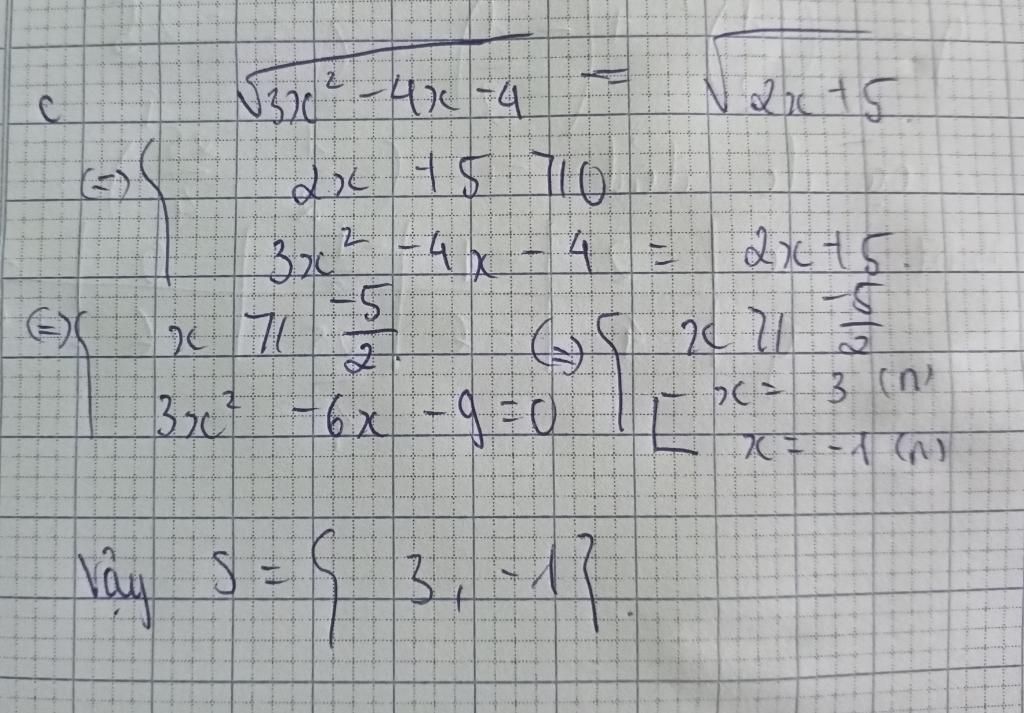 c √(3x² - 4x - 4) = √(2x + 5)
(=) { 2x + 5 ⩾ 0
3x² - 4x - 4 = 2x + 5.
(=) { x ⩾ -5/2. (=) { x ⩾ -5/2
3x² - 6x - 9 = 0 [ x = 3 (n)
x = -1 (n)
Vậy S = { 3, -1 }.